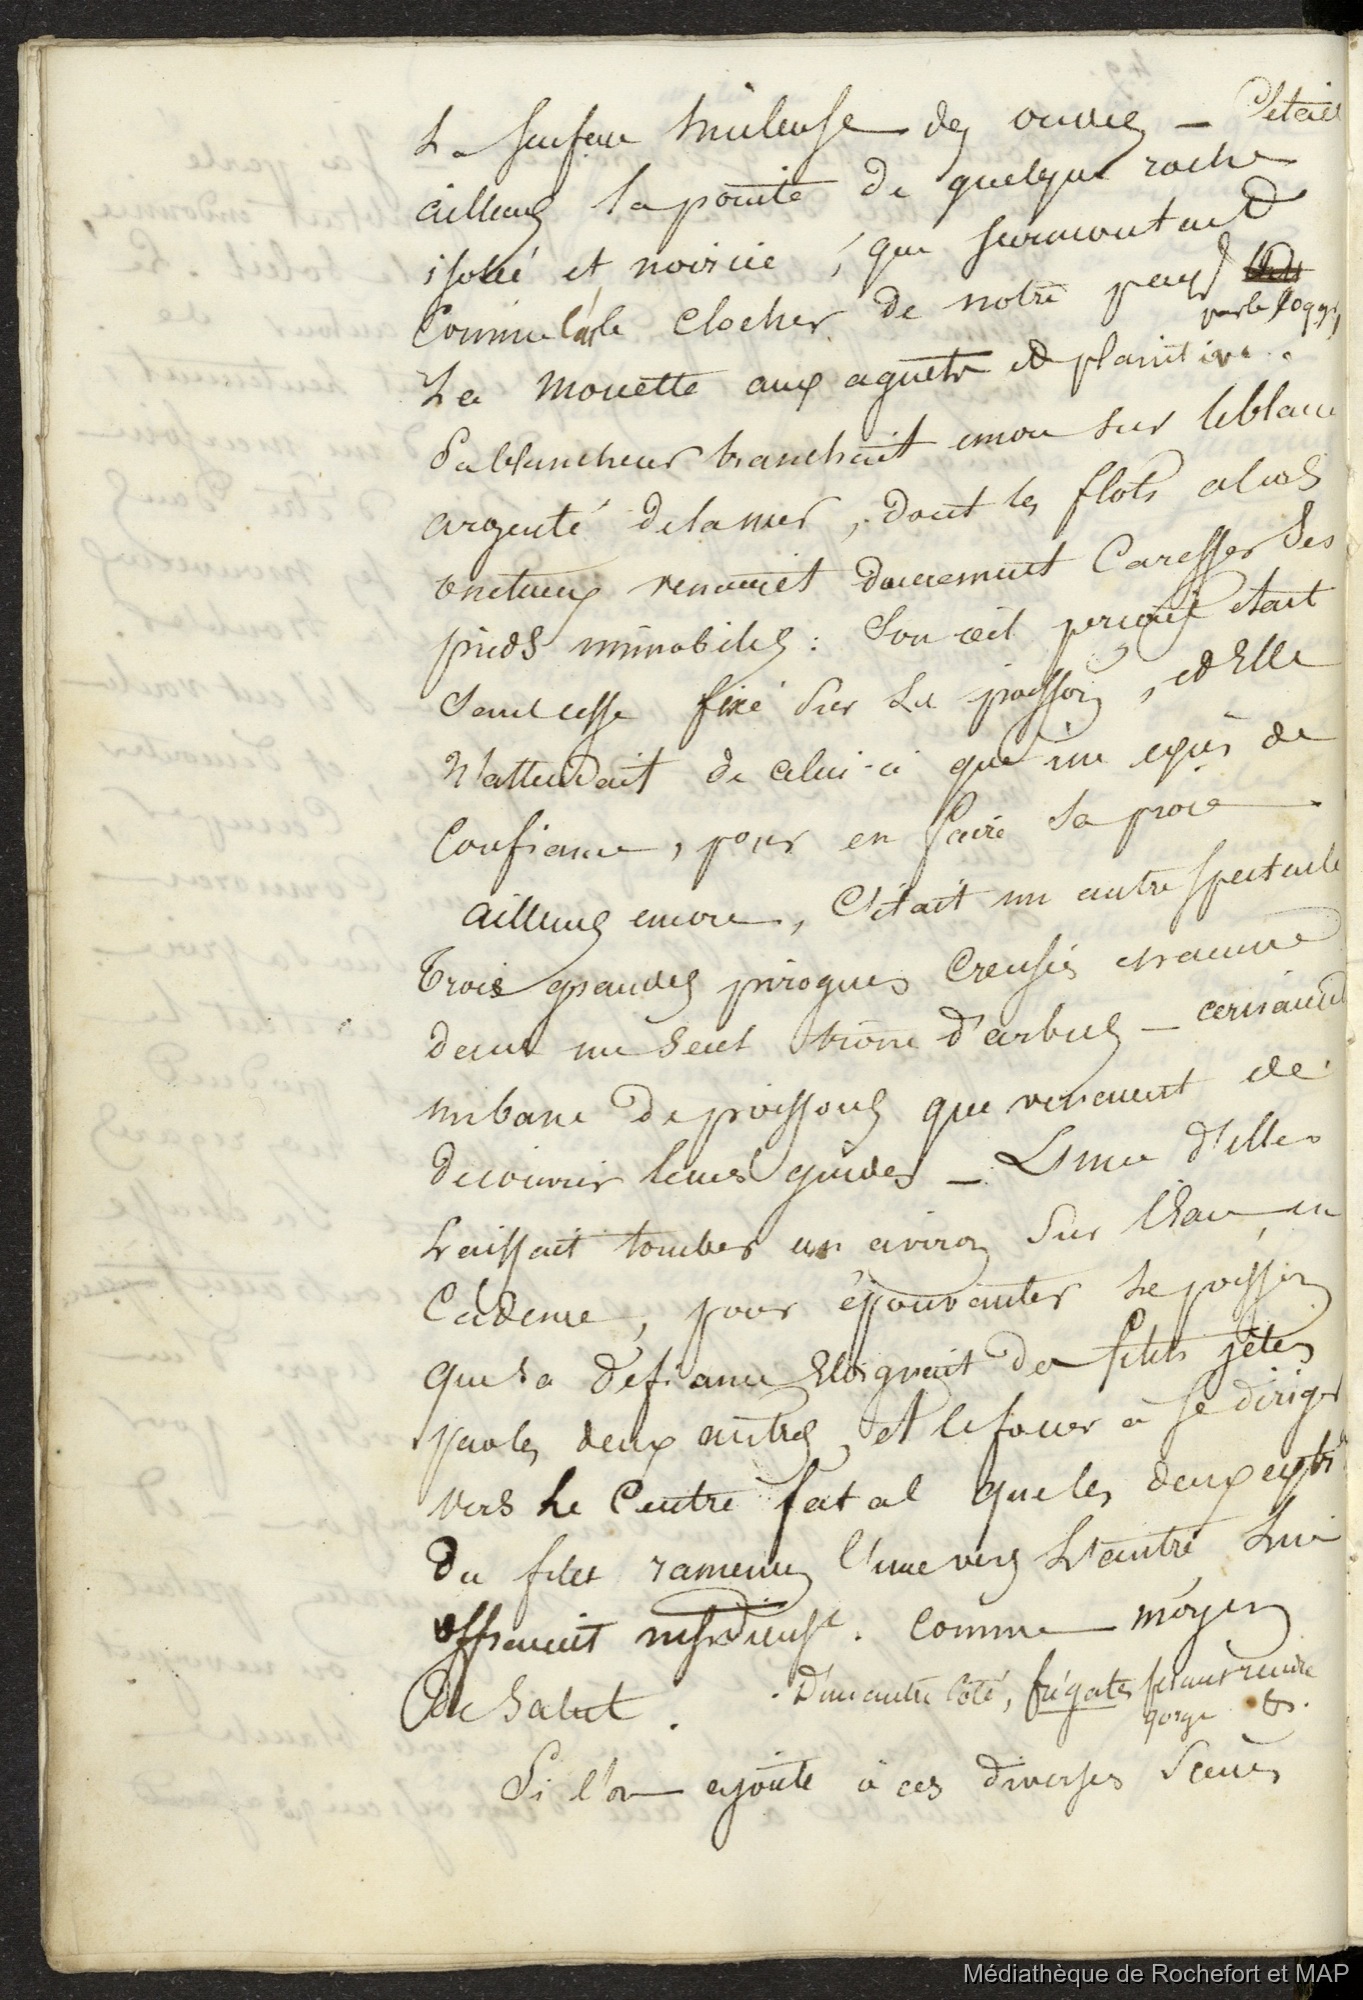 La surface huileuse des ondes — C'était
ailleurs la pointe de quelque roche
isolée et noircie, que surmontait
Comme l'est le clocher de notre pays
par le coq,
La mouette aux aguets et plaintive.
Sa blancheur tranchait encore sur le blanc
argenté de la mer, dont les flots alors
onctueux venaient doucement Caresser Ses
pieds immobiles : Son œil perçant était
Sans cesse fixé Sur Le poisson, et Elle
N'attendait de celui-ci que un excès de
Confiance, pour en faire Sa proie.
ailleurs encore, C'était un autre Spectacle
Trois grandes pirogues Creusées chacune
dans un Seul tronc d'arbres — cernaient
un banc de poissons que venaient de
découvrir leurs guides — L'une d'elles
Laissait tomber un aviron Sur l'Eau, en
Cadence, pour épouvanter Le poisson
que Sa défiance Eloignait des filets jetés
par les deux autres, et le forcer à Se diriger
vers Le Centre fatal que les deux
Du filet ramenés l'une vers L'autre, Lui
offraient. Comme moyen
De Salut. D'un autre Côté, frégates faisant rendre
gorge &.
Si l'on ajoute à ces diverses Scènes
Médiathèque de Rochefort et MAP